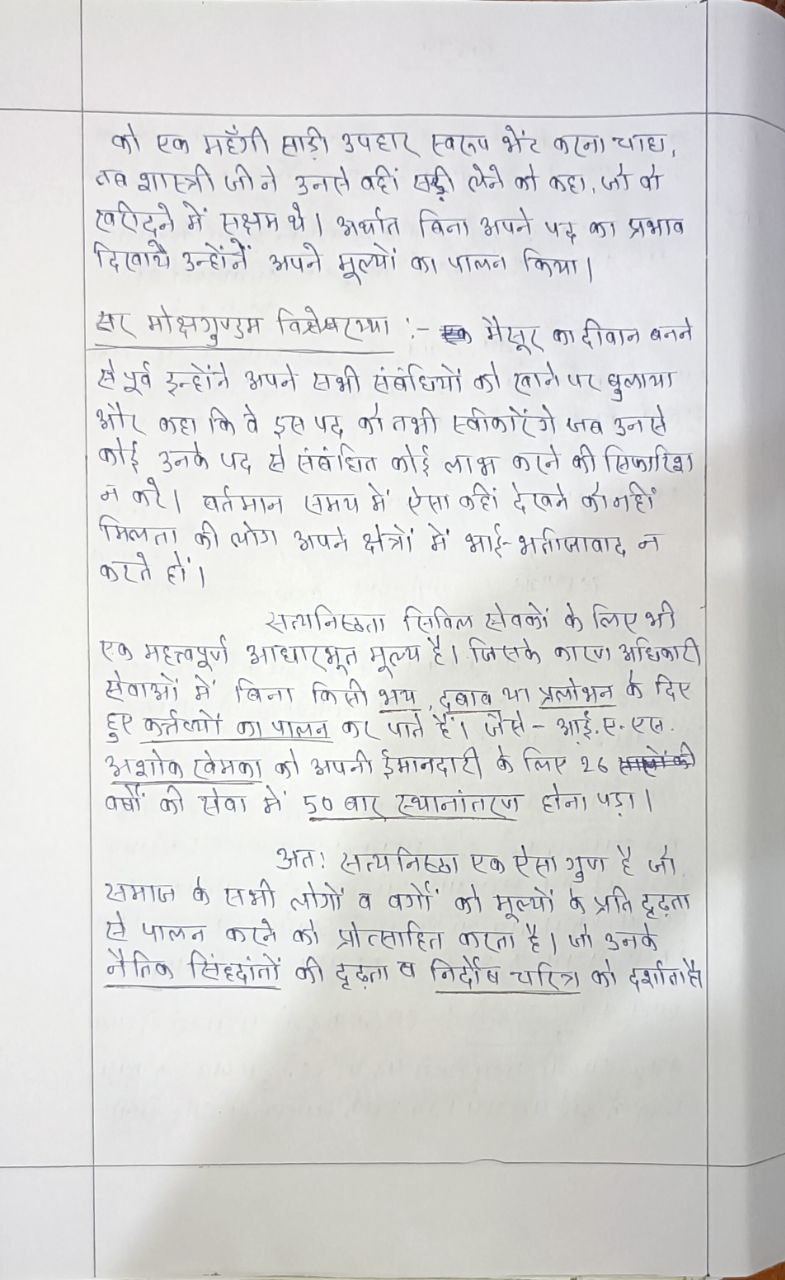 को एक महँगी साड़ी उपहार स्वरूप भेंट करना चाहा,
तब शास्त्री जी ने उनसे वहीं साड़ी लेने को कहा, जो वो
खरीदने में सक्षम थे। अर्थात बिना अपने पद का प्रभाव
दिखाये उन्होंनें अपने मूल्यों का पालन किया।
सर मोक्षगुण्डम विश्वेश्वरय्या :- मैसूर का दीवान बनने
से पूर्व इन्होंने अपने सभी संबंधियों को खाने पर बुलाया
और कहा कि वे इस पद को तभी स्वीकारेंगे जब उनसे
कोई उनके पद से संबंधित कोई लाभ करने की सिफारिश
न करे। वर्तमान समय में ऐसा कहीं देखने को नहीं
मिलता की लोग अपने क्षेत्रों में भाई-भतीजावाद न
करते हों।
सत्यनिष्ठता सिविल सेवकों के लिए भी
एक महत्त्वपूर्ण आधारभूत मूल्य है। जिसके कारण अधिकारी
सेवाओं में बिना किसी भय, दबाव या प्रलोभन के दिए
हुए कर्त्तव्यों का पालन कर पाते हैं। जैसे - आई.ए.एस.
अशोक खेमका को अपनी ईमानदारी के लिए 26
वर्षों की सेवा में 50 बार स्थानांतरण होना पड़ा।
अतः सत्यनिष्ठा एक ऐसा गुण है जो
समाज के सभी लोगों व वर्गों को मूल्यों के प्रति दृढ़ता
से पालन करने को प्रोत्साहित करता है। जो उनके
नैतिक सिंद्दांतों की दृढ़ता व निर्दोष चरित्र को दर्शाता है